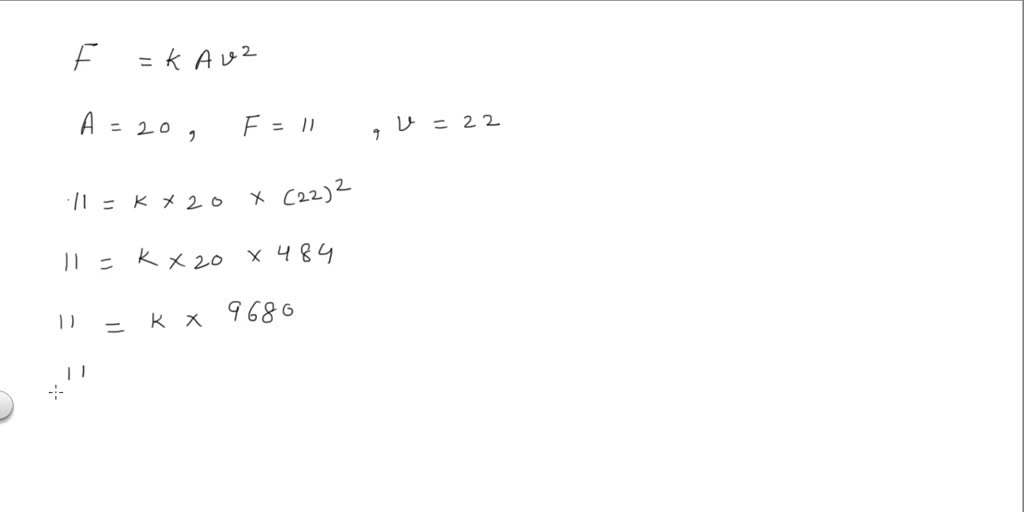 F = k A v²
A = 20 , F = 11 , v = 22
11 = k × 20 × (22)²
11 = k × 20 × 484
11 = k × 9680
11